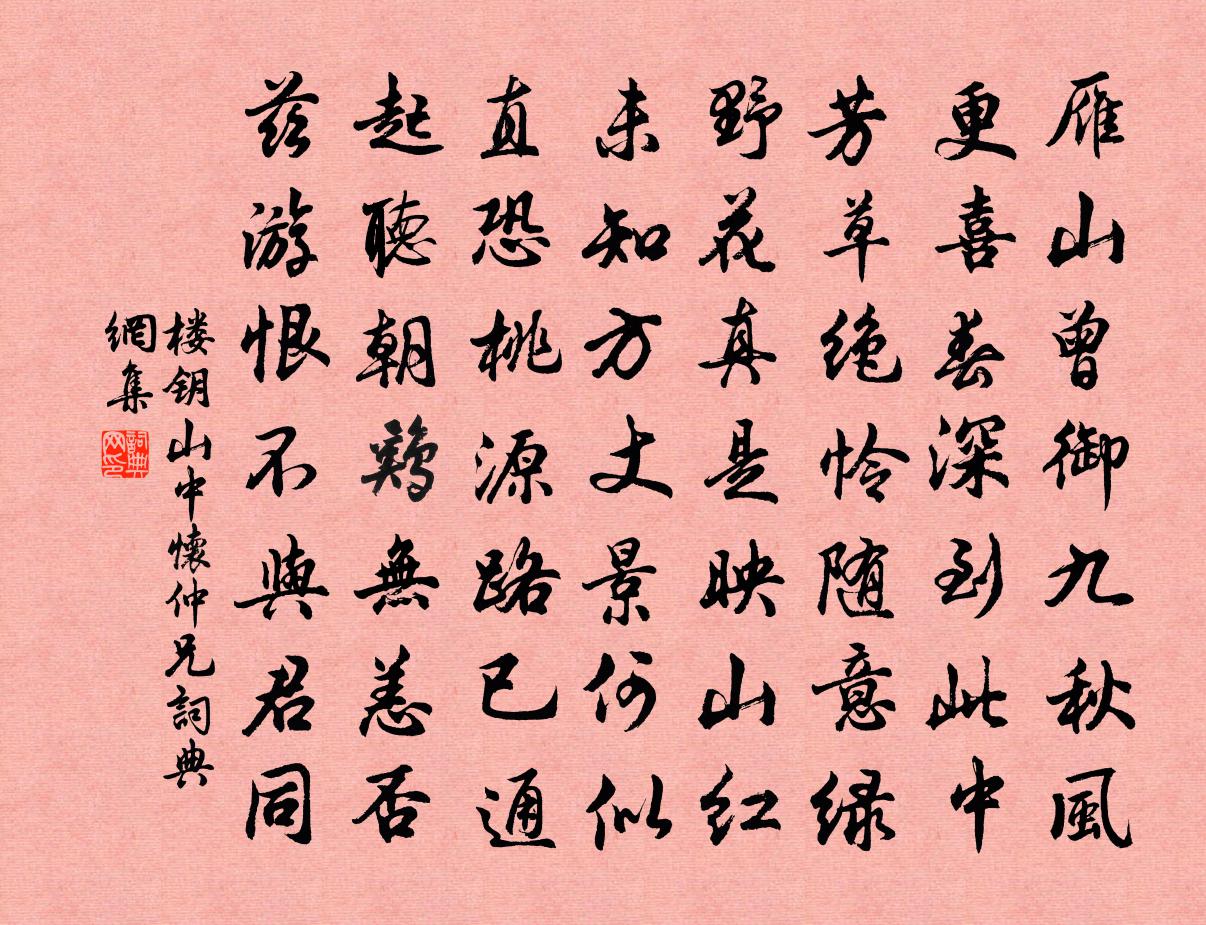 雁山曾御九秋風
更喜春深到此中
芳草絶怜随意緑
野花真是映山红
未知方丈景何似
直恐桃源路已通
起聽朝鷄無恙否
兹游恨不與君同
楼钥山中懷仲兄詞典
網集
詞典
网印